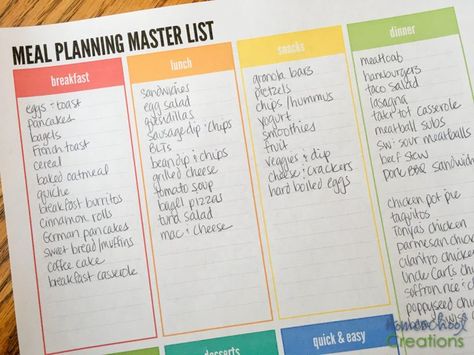 MEAL PLANNING MASTER LIST
breakfast
eggs - toast
pancakes
bagels
French toast
cereal
baked oatmeal
quiche
breakfast burritos
cinnamon rolls
German pancakes
sweet bread/muffins
coffee cake
breakfast casserole
lunch
sandwiches
egg salad
quesadillas
sausage dip + chips
BLTs
bean dip + chips
grilled cheese
tomato soup
bagel pizzas
tuna salad
mac + cheese
snacks
granola bars
pretzels
chips/hummus
yogurt
smoothies
fruit
veggies + dip
cheese + crackers
hard boiled eggs
dinner
meatloaf
hamburgers
taco salad
lasagna
tater tot casserole
meatball subs
sw: sour meatballs
beef stew
pork BBQ sandwich
chicken pot pie
taquitos
Tonya's chicken
parmesan chicken
cilantro chicken
Uncle Carl's
saffron rice
poppyseed
desserts
quick & easy
Homeschool
Creations